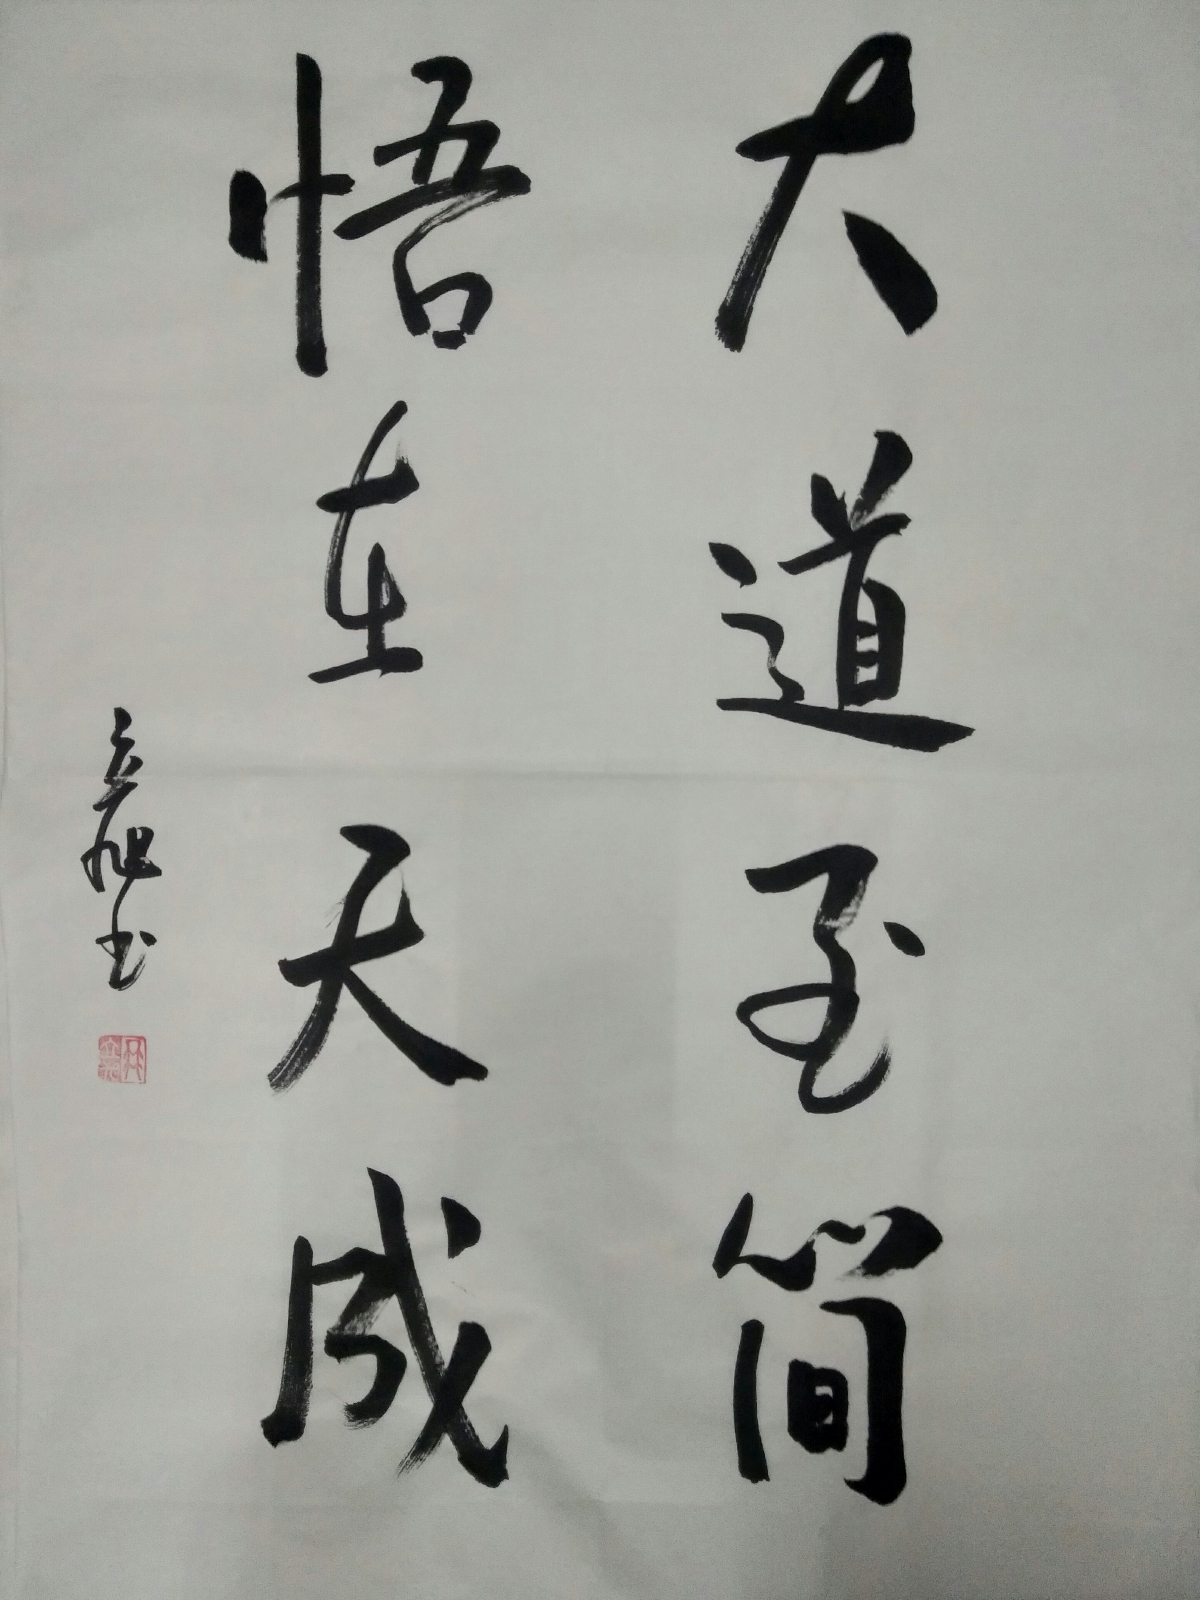 大道至简
悟在天成
立旭书